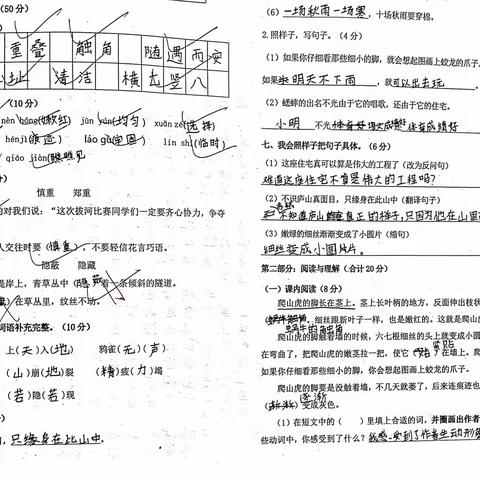 (50分)
重叠 触角 随遇而安
址 清洁 横七竖八
(10分)
nèn hóng(嫩红) jūn yún(均匀) xuǎn zé(选择)
hénjì(痕迹) láo gù(牢固) lín shí(临时)
qiáo jiàn(瞧见)
慎重 郑重
的对我们说：“这次拔河比赛同学们一定要齐心协力，争夺
人交往时要(慎重)，不要轻信花言巧语。
隐蔽 隐藏
是岸上，青草丛中(隐蔽)着一条倾斜的隧道。
在草丛里，纹丝不动。
词语补充完整。(10分)
上(天)入(地) 鸦雀(无)(声)
(山)崩(地)裂 (精)疲(力)竭
(若)隐(若)现
，只缘身在此山中。
(6)一场秋雨一场寒，十场秋雨要穿棉。
2.照样子，写句子。(4分)
(1)如果你仔细看那些细小的脚，就会想起图画上蛟龙的爪子。
如果明天不下雨，就可以出去玩
(2)蟋蟀的出名不光由于它的唱歌，还由于它的住宅。
小明 不光 体育成绩好
七、我会照样子把句子具体。(6分)
(1)这座住宅可以算是伟大的工程了(改为反问句)
难道这座住宅不算是伟大的工程吗？
(2)不识庐山真面目，只缘身在此山中(翻译句子)
不知道庐山真正的样子，只因为他在山里
(3)嫩绿的细丝渐渐变成了小圆片(缩句)
细丝变成小圆片。
第二部分：阅读与理解(合计20分)
(一)课内阅读(8分)
爬山虎的脚长在茎上。茎上长叶柄的地方，反面伸出枝状
蜗牛的触角 细丝跟新叶子一样，也是嫩红的。这就是爬山虎
爬山虎的脚触着墙的时候，六七根细丝的头上就变成小圆
在弯曲了，把爬山虎的嫩茎拉一把，使它(紧贴)在墙上。爬
如果你仔细看那些细小的脚，你会想起图画上蛟龙的爪子。
爬山虎的脚要是没触着墙，不几天就萎了，后来连痕迹也
(逐渐)变成灰色。
(1)在短文中的( )里填上合适的词，并圈画出作者
些动词中，你感受到了什么？我感受到了作者生动形